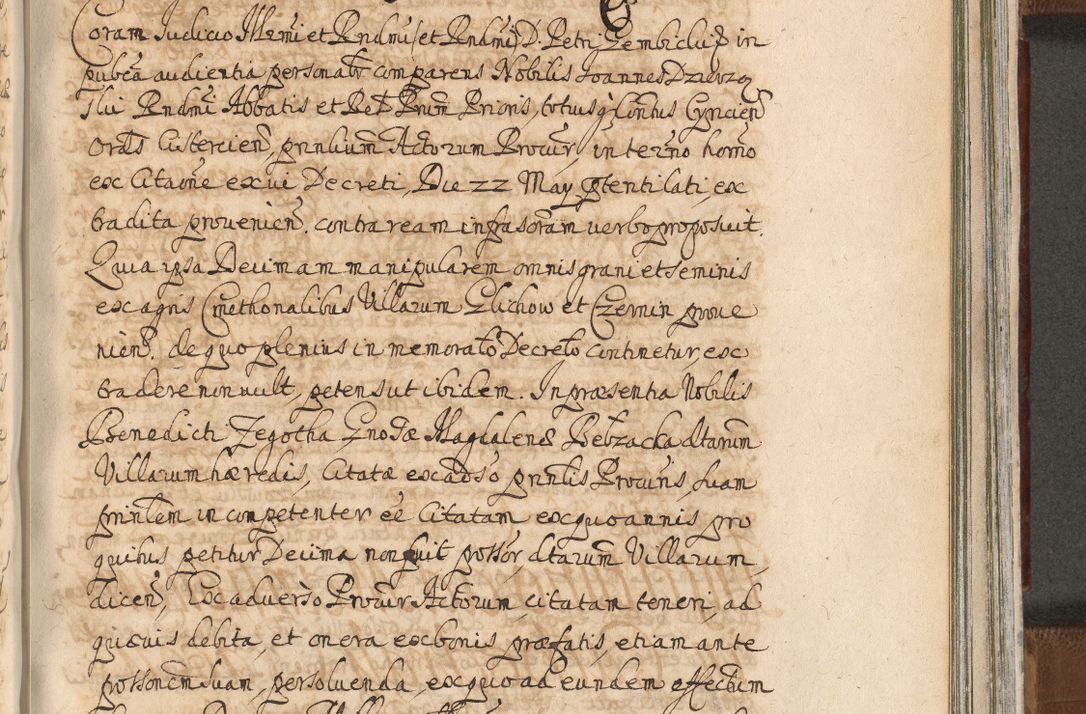 Coram Iudicio Illmi et Rndmi (et Rndmi) D. Petri Gembickij in
pubca audientia personalr comparens Nobilis Joannes Dzierzg
Rndmi Abbatis et Red Prum Prioris, totiusq Contus Cyncien
Ords Cistercien, pnnlium Actorum Procur, in terno homo
ex Citaone ex vi Decreti, Die 22 May ptentilati, ex
tradita provenien. contra ream infrasoram verbo proposuit.
Quia ipsa Decimam manipularem omnis grani et seminis
ex agris Cmethonalibus Villarum Glichow et Czernin prove
nien. de quo plenius in memorato Decreto continetur, ex
tradere non vult, peten sut ibidem. In præsentia Nobilis
Benedicti Zegotha Gnosæ Magdalenæ Bebzacka dtarum
Villarum hæredis, Citatæ ex adso pnnlis Procuris, suam
prinlem incompetenter eē Citatam ex quo annis pro
quibus petitur Decima non fuit possor, dtarum Villarum,
dicen, Ex adverso Procur Actorum citatam teneri, ad
quævis debita, et onera ex bonis præfatis, etiam ante
possonem suam, persolvenda, ex quo ad eundem effectum